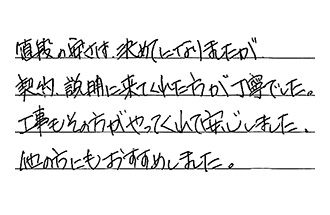 値段の安さは、決めてになりましたが
契約、説明に来てくれた方が丁寧でした。
工事もその方がやってくれて安心しました、
他の方にもおすすめしました。